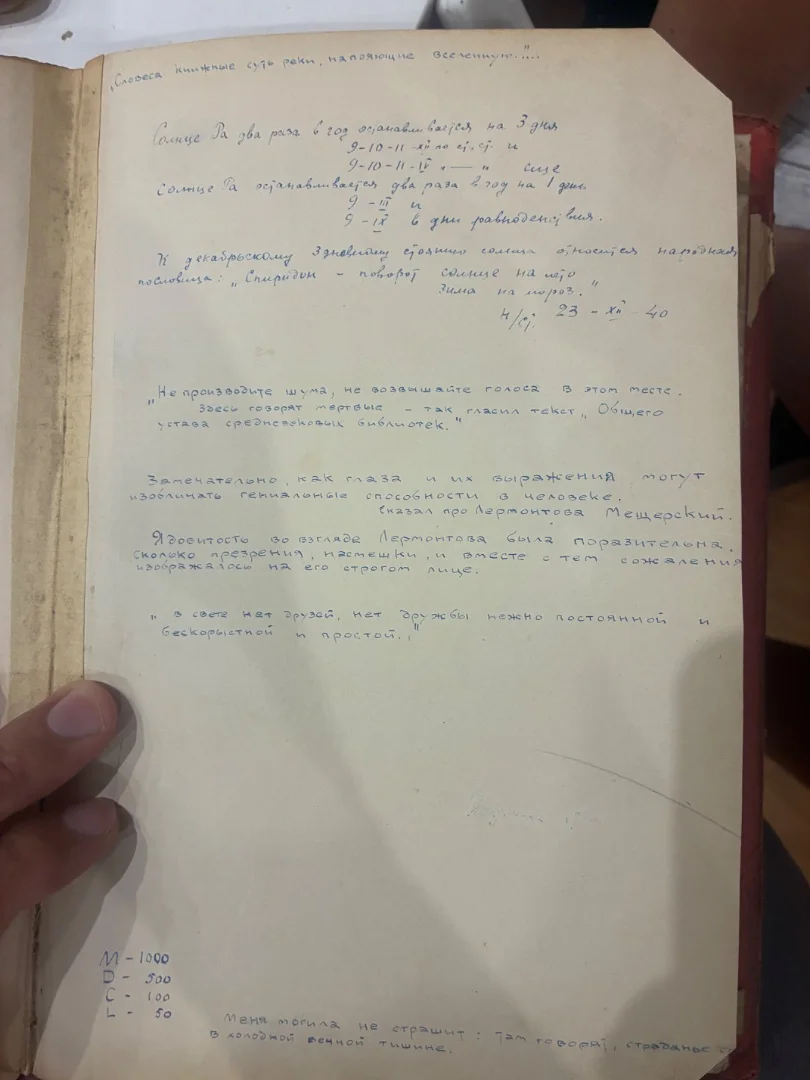 „Словеса книжные суть реки, напояющие вселенную."...
Солнце Ра два раза в год останавливается на 3 дня
9-10-11-XII по ст. ст. и
9-10-11-IV „ — „ еще
Солнце Ра останавливается два раза в год на 1 день
9 - III и
9 - IX в дни равноденствия.
К декабрьскому 3дневному стоянию солнца относится народная
пословица: „Спиридон - поворот солнце на лето
Зима на мороз."
н/ст. 23 - XII - 40
„Не производите шума, не возвышайте голоса в этом месте.
Здесь говорят мертвые - так гласил текст „Общего
устава средневековых библиотек."
Замечательно, как глаза и их выражения могут
изобличать гениальные способности в человеке.
Сказал про Лермонтова Мещерский.
Ядовитость во взгляде Лермонтова была поразительна.
сколько презрения, насмешки, и вместе с тем сожаления
изображалось на его строгом лице.
„ в свете нет друзей, нет дружбы нежно постоянной и
бескорыстной и простой."
M - 1000
D - 500
C - 100
L - 50
Меня могила не страшит: там говорят, страданье
в холодной вечной тишине.